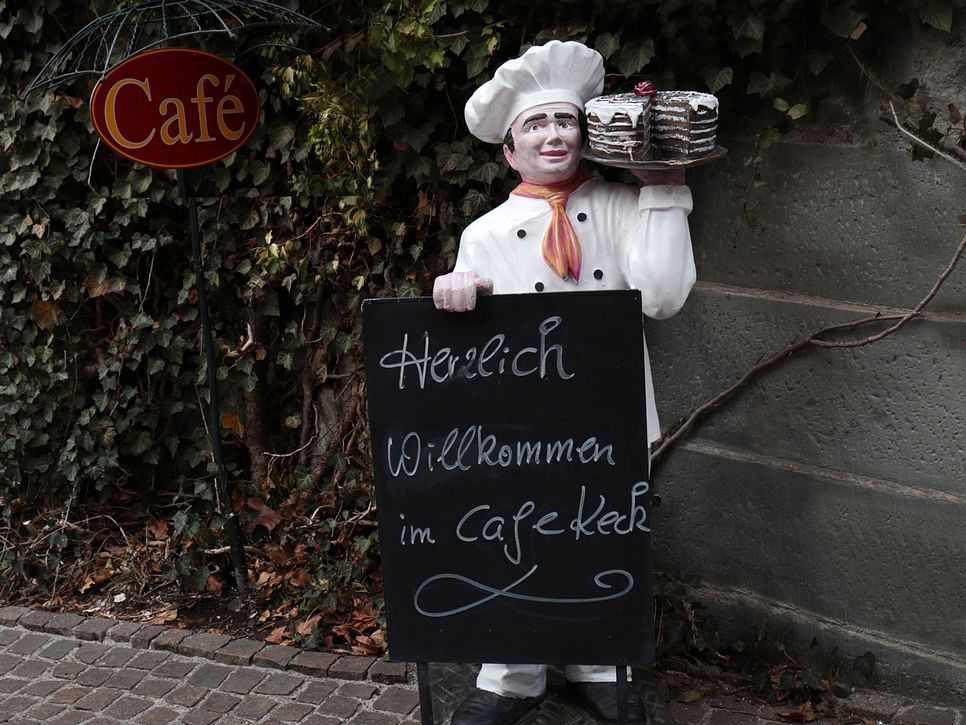 Café
Herzlich
Willkommen
im Cafe Keck